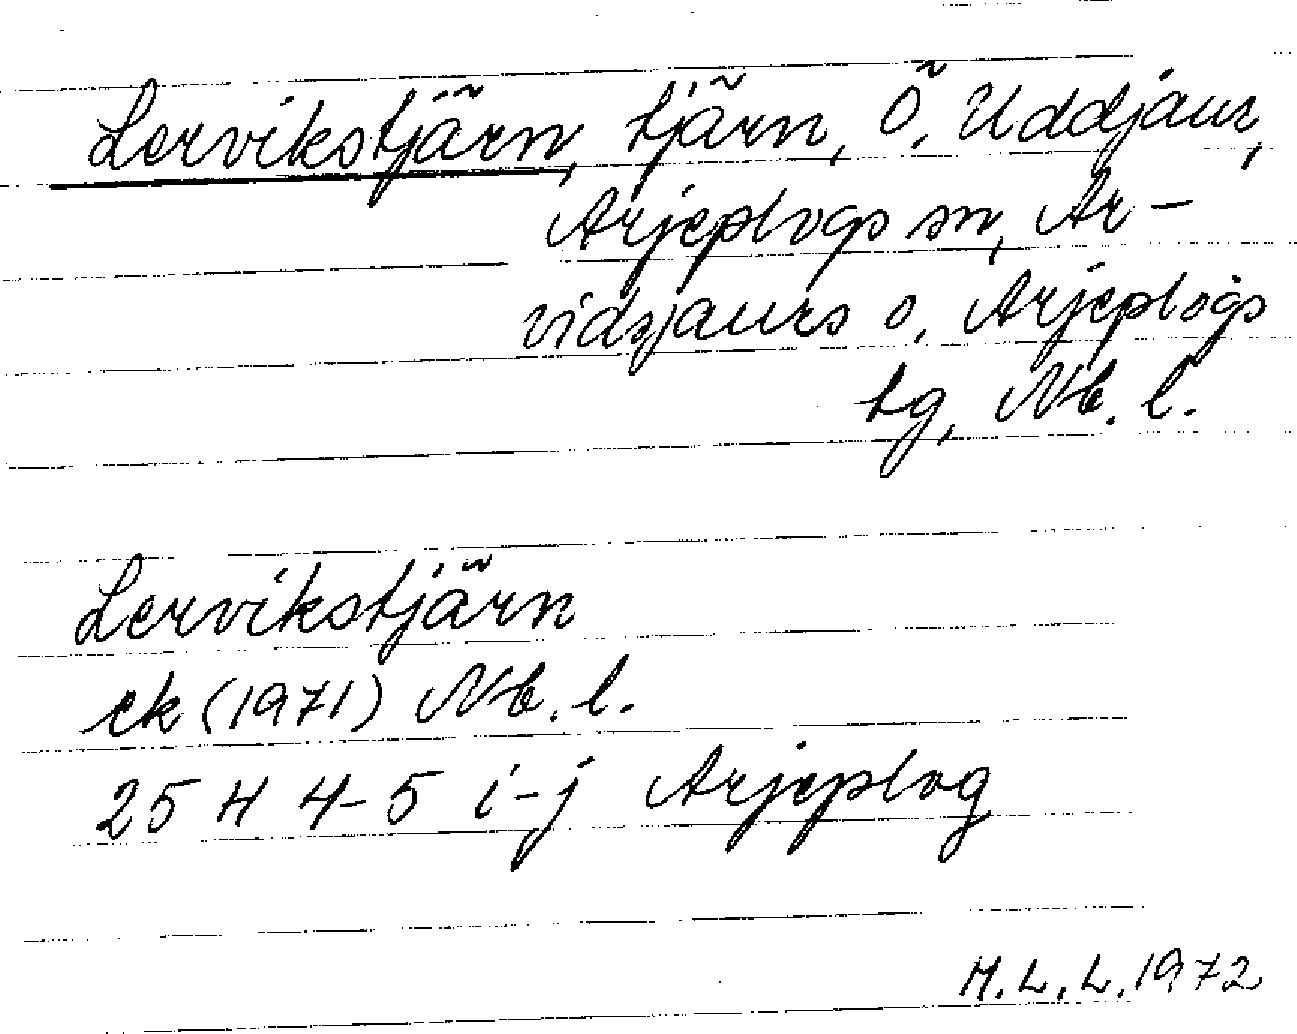 Lervikstjärn, tjärn, Ö. Uddjaur,
Arjeplogs sn, Ar-
vidsjaurs o. Arjeplogs
tg, Nb. l.
Lervikstjärn
ek (1971) Nb. l.
25 H 4-5 i-j Arjeplog
H.L.L. 1972